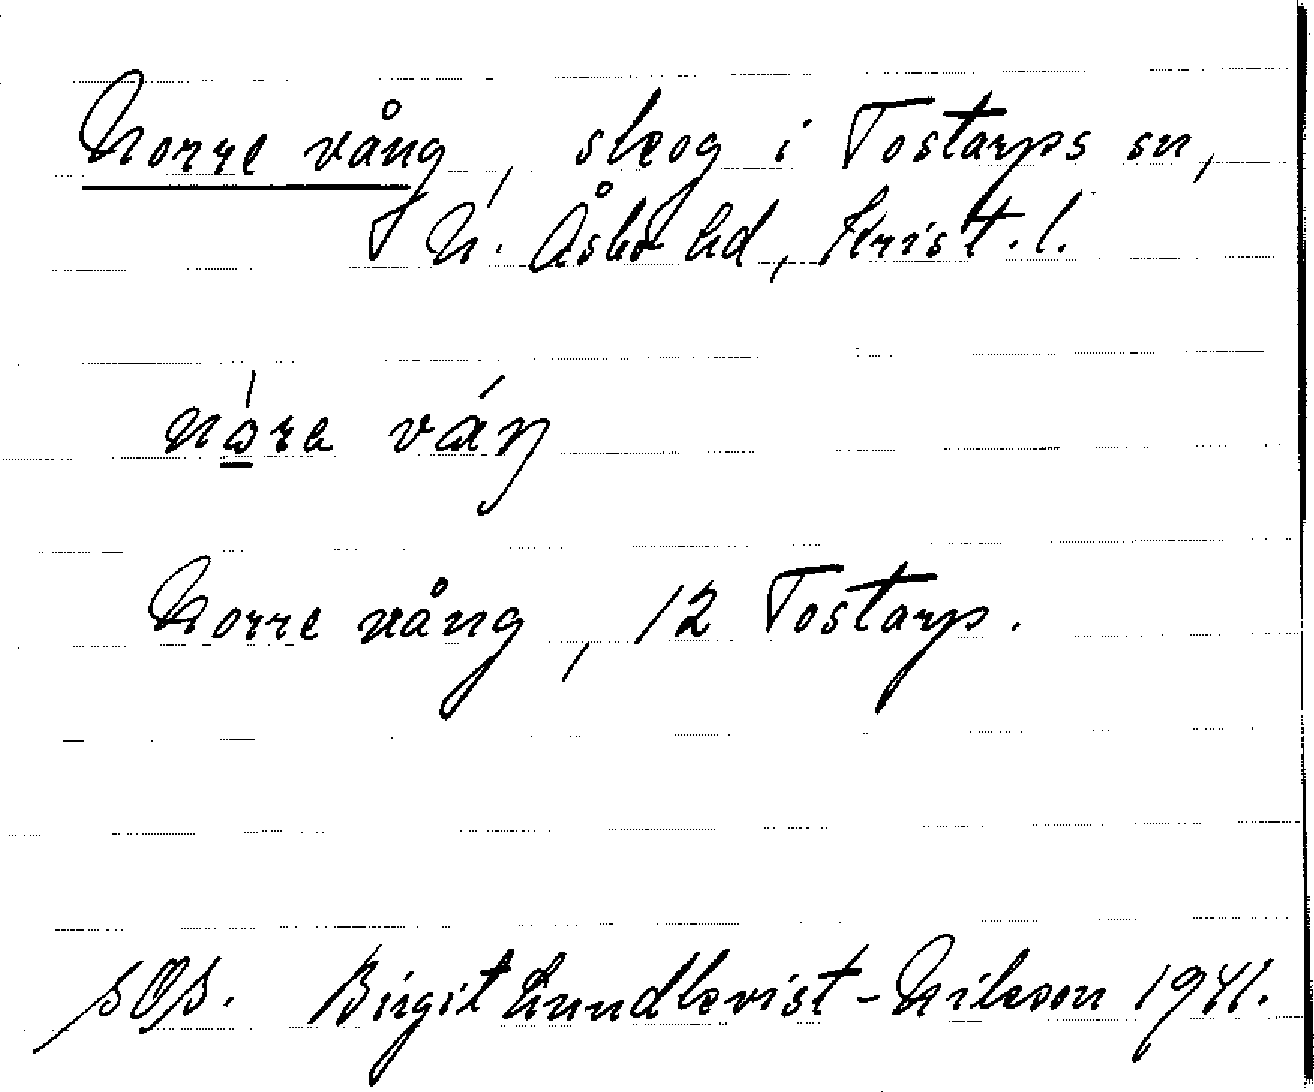 Norre vång, skog i Tostarps sn,
N. Åsbo hd, Krist. l.
nóra váŋ
Norre vång, 12 Tostarp.
Birgit Lundkvist-Nilsson 1941.